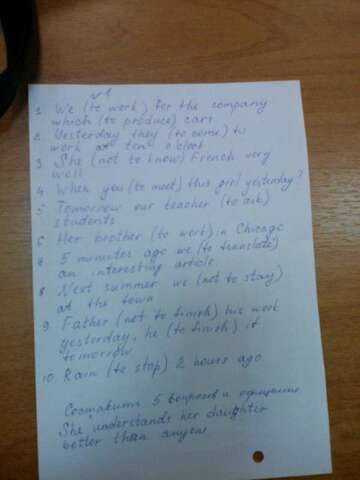 v1
1. We (to work) for the company
which (to produce) cars
2. Yesterday they (to come) to
work at ten o'clock
3 She (not to know) French very
well
4 When you (to meet) this girl yesterday?
5 Tomorrow our teacher (to ask)
students
6 Her brother (to work) in Chicago
7 5 minutes ago we (to translate)
an interesting article
8 Next summer we (not to stay)
at the town
9. Father (not to finish) his work
yesterday, he (to finish) it
tomorrow
10. Rain (to stop) 2 hours ago.
Составить 5 вопросов и отрицание
She understands her daughter
better than anyone